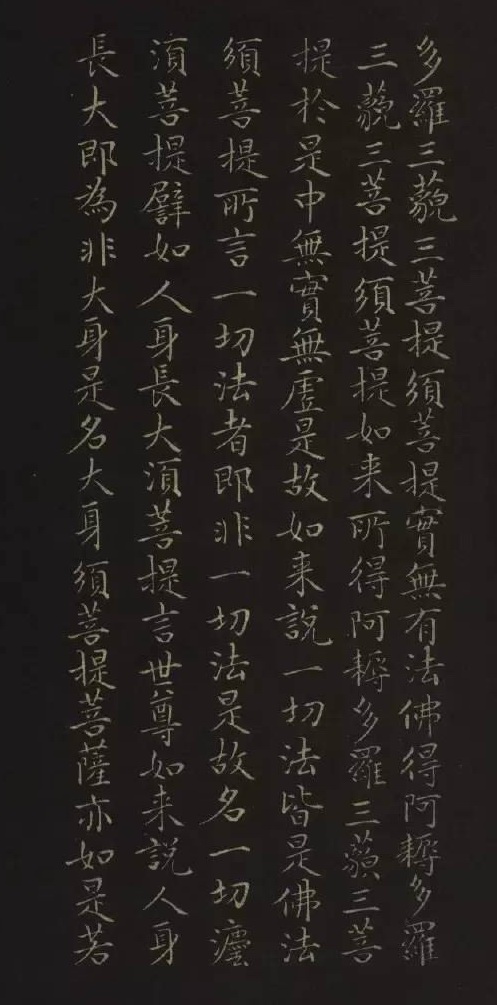 多羅三藐三菩提須菩提實無有法佛得阿耨多羅
三藐三菩提須菩提如来所得阿耨多羅三藐三菩
提於是中無實無虛是故如来說一切法皆是佛法
須菩提所言一切法者即非一切法是故名一切法
湏菩提譬如人身長大湏菩提言世尊如来說人身
長大即為非大身是名大身須菩提菩薩亦如是若